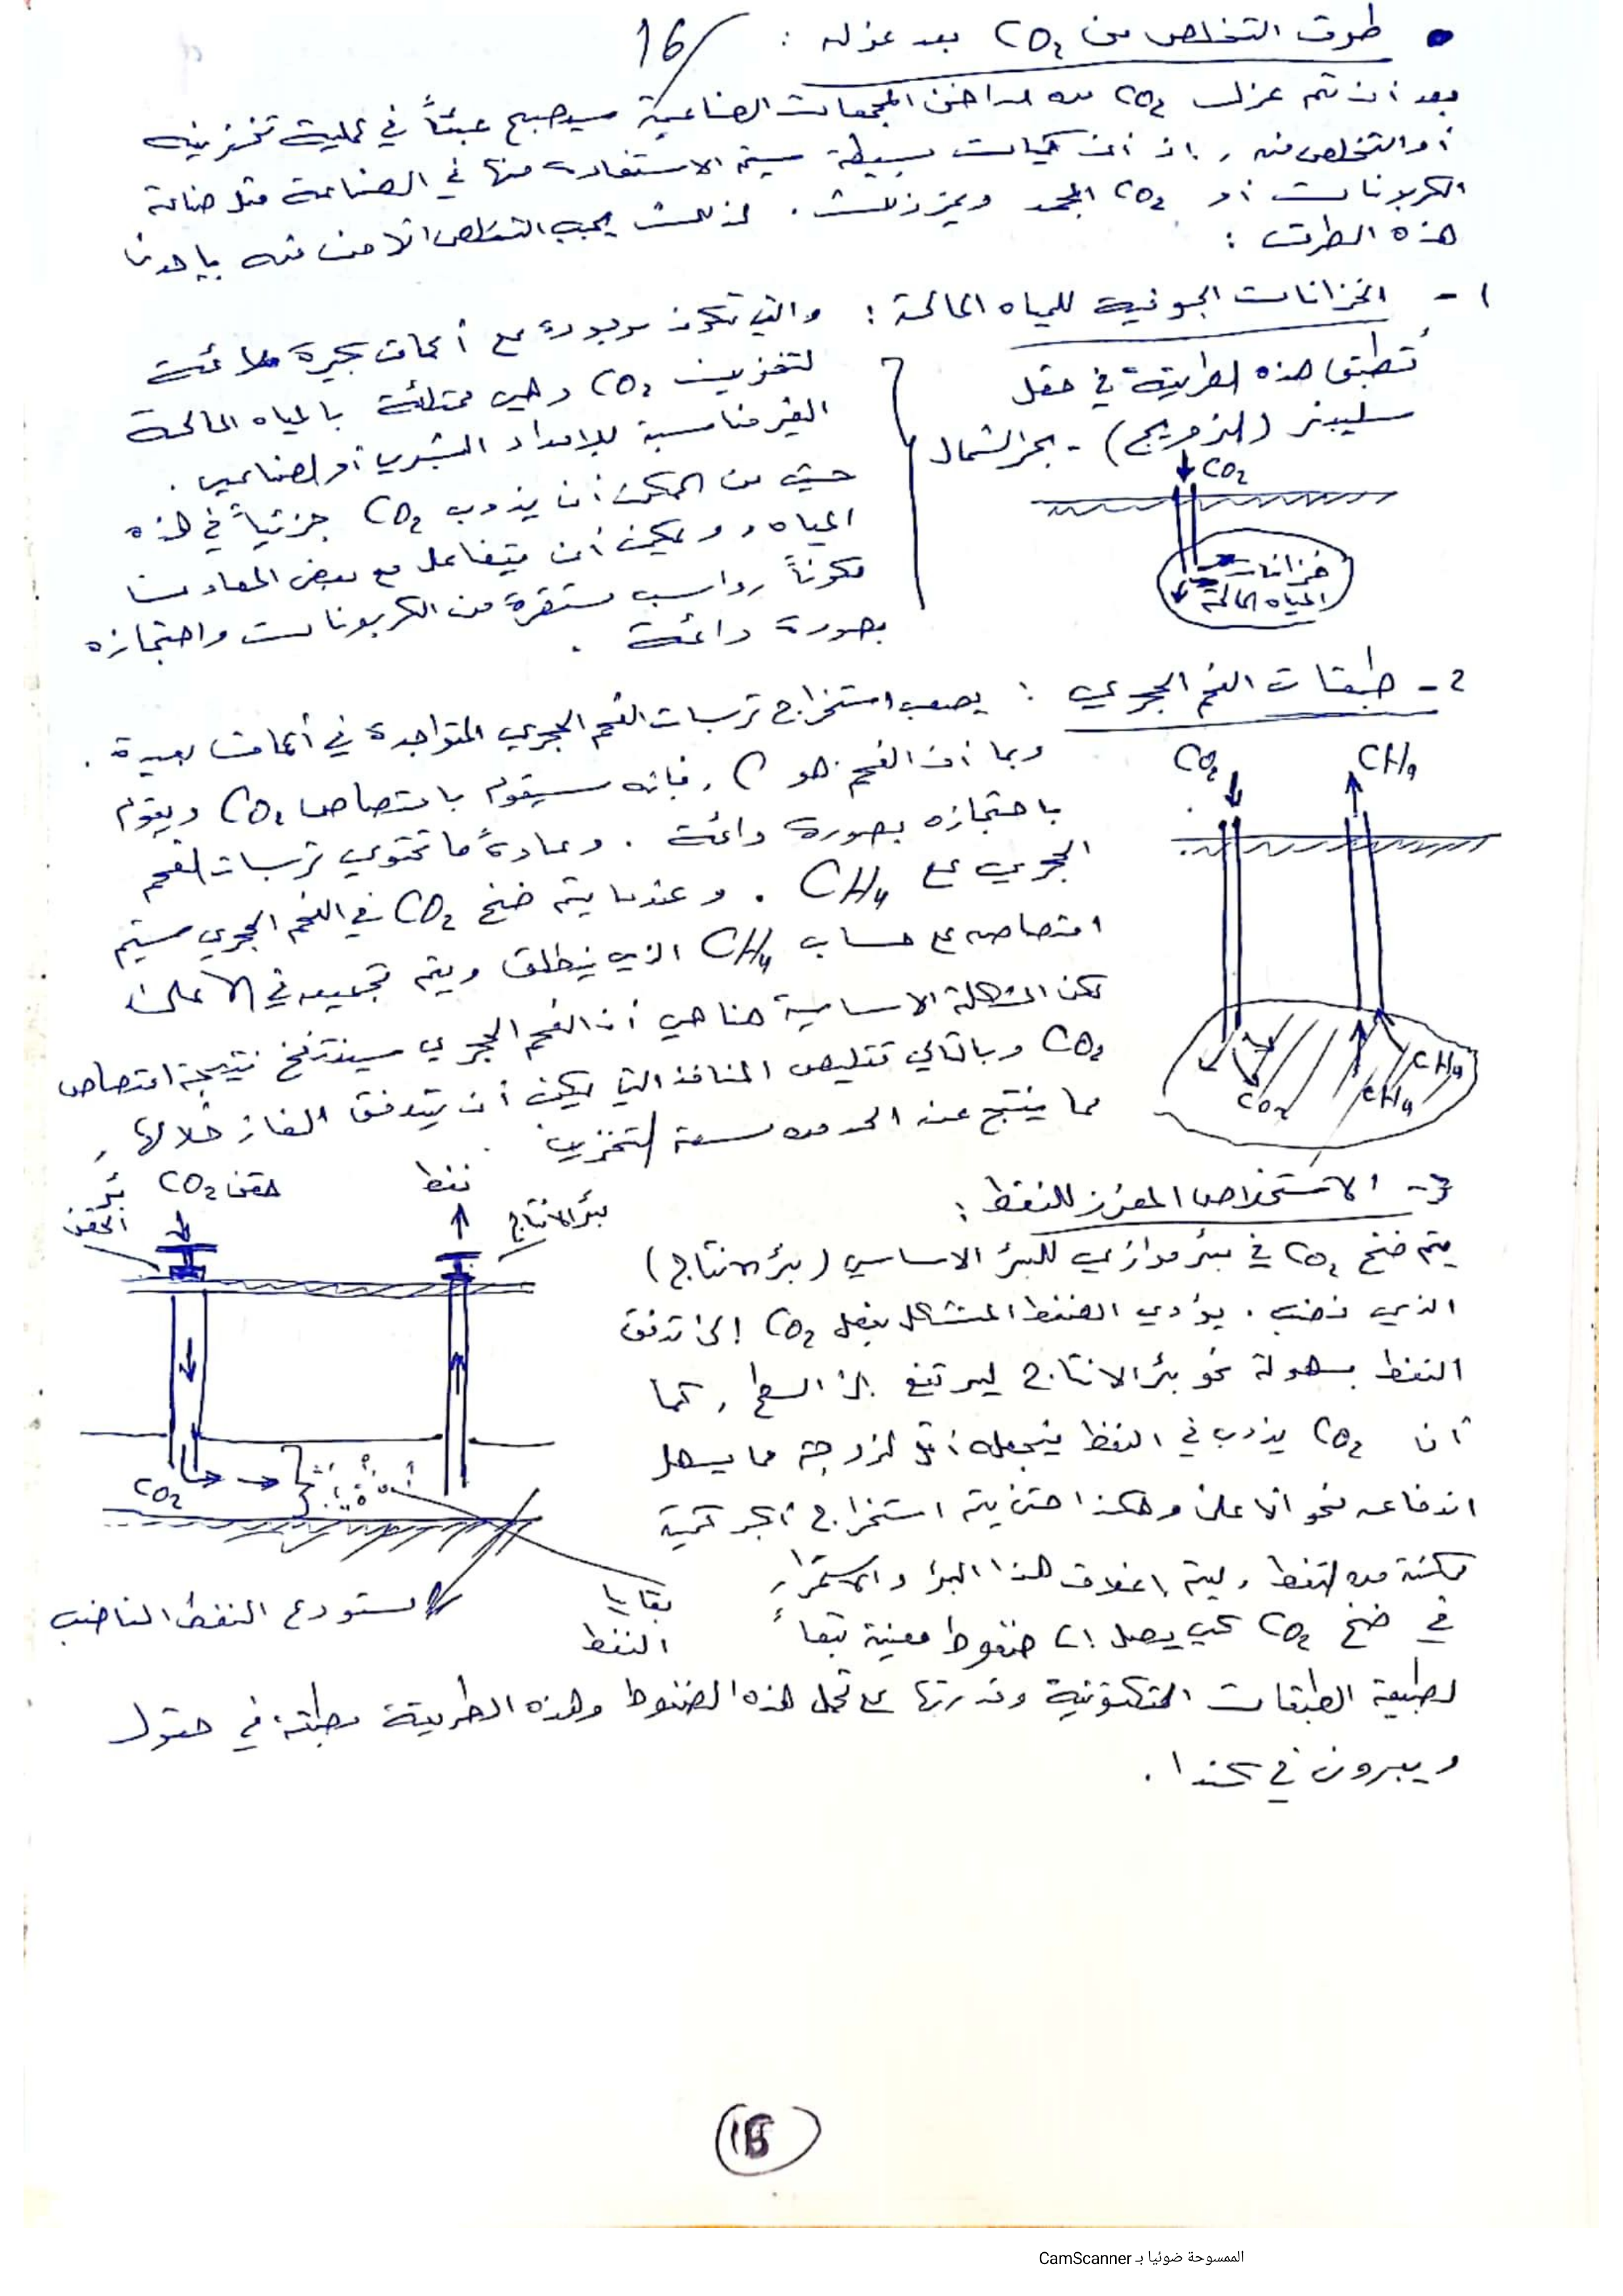 • طرق التخلص من CO₂ بعد عزله :
16/
بعد أن تم عزل CO₂ من مداخن المجمعات الصناعية سيصبح عبئاً في عملية تخزينه
أو التخلص منه ، إذ أن كميات بسيطة سيتم الاستفادة منها في الصناعة مثل صناعة
الكربونات أو CO₂ المجمد وغير ذلك . لذلك يجب التخلص الآمن منه بإحدى
هذه الطرق :
1- الخزانات الجوفية للمياه المالحة : والتي تكون موجودة على أعماق كبيرة ملائمة
لتخزين CO₂ وهي ممتلئة بالمياه المالحة
الغير مناسبة للإمداد البشري أو الصناعي .
حيث من الممكن أن يذوب CO₂ جزئياً في هذه
المياه ، ويمكن أن يتفاعل مع بعض المعادن
مكوناً رواسب مستقرة من الكربونات واحتجازه
بصورة دائمة .
تُطبق هذه الطريقة في حقل
سليبنر (النرويج) - بحر الشمال
CO₂
خزانات
المياه المالحة
2- طبقات الفحم الحجري : يصعب استخراج ترسبات الفحم الحجري المتواجدة في أعماق بعيدة .
وبما أن الفحم هو C ، فإنه سيقوم بامتصاص CO₂ ويقوم
باحتجازه بصورة دائمة . وعادةً ما تحتوي ترسبات الفحم
الحجري على CH₄ . وعندما يتم ضخ CO₂ في الفحم الحجري سيتم
امتصاصه على حساب CH₄ الذي ينطلق ويتم تجميعه في الأعلى
لكن المشكلة الاساسية هنا هي أن الفحم الحجري سينتفخ نتيجة امتصاص
CO₂ وبالتالي تتقلص المنافذ التي يمكن أن يتدفق الغاز خلالها ،
مما ينتج عنه الحد من سعة التخزين .
CO₂ CH₄
CO₂ CH₄ CH₄
3- الاستخلاص المعزز للنفط :
يتم ضخ CO₂ في بئر موازي للبئر الاساسي (بئر الانتاج)
الذي نضب . يؤدي الضغط المتشكل بفعل CO₂ إلى تدفق
النفط بسهولة نحو بئر الانتاج ليرتفع إلى السطح ، كما
أن CO₂ يذوب في النفط فيجعله أقل لزوجة مما يسهل
اندفاعه نحو الأعلى وهكذا حتى يتم استخراج أكبر كمية
ممكنة من النفط ، ليتم إغلاق هذا البئر والاستمرار
في ضخ CO₂ لكي يصل إلى ضغوط معينة تبعاً
لطبيعة الطبقات التكتونية وقدرتها على تحمل هذه الضغوط وهذه الطريقة مطبقة في حقول
ويبرون في كندا .
حقن CO₂
بئر
الحقن
نفط
بئر الانتاج
CO₂
بقايا
النفط
مستودع النفط الناضب
الممسوحة ضوئيا بـ CamScanner